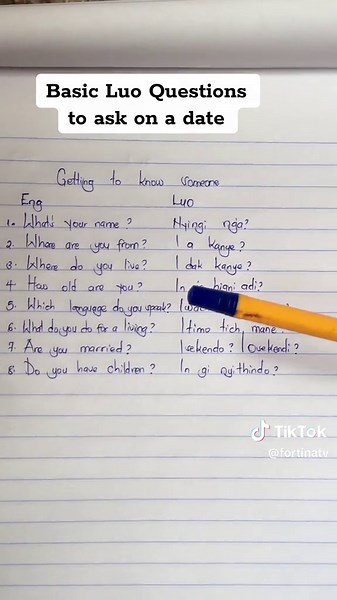 Basic Luo Questions
to ask on a date
Getting to know someone
Eng Luo
1. What'd your name? Nyingi nga?
2. Where are you from? I a kanye?
3. Where do you live? I dak kanye?
4 How old are you? In higni adi?
5. Which language do you speak?
6. What do you do for a living? Itimo tich mane?
7. Are you married? Isekendo? Osekendi?
8. Do you have children? In gi nyithindo?
TikTok
@fortinatv